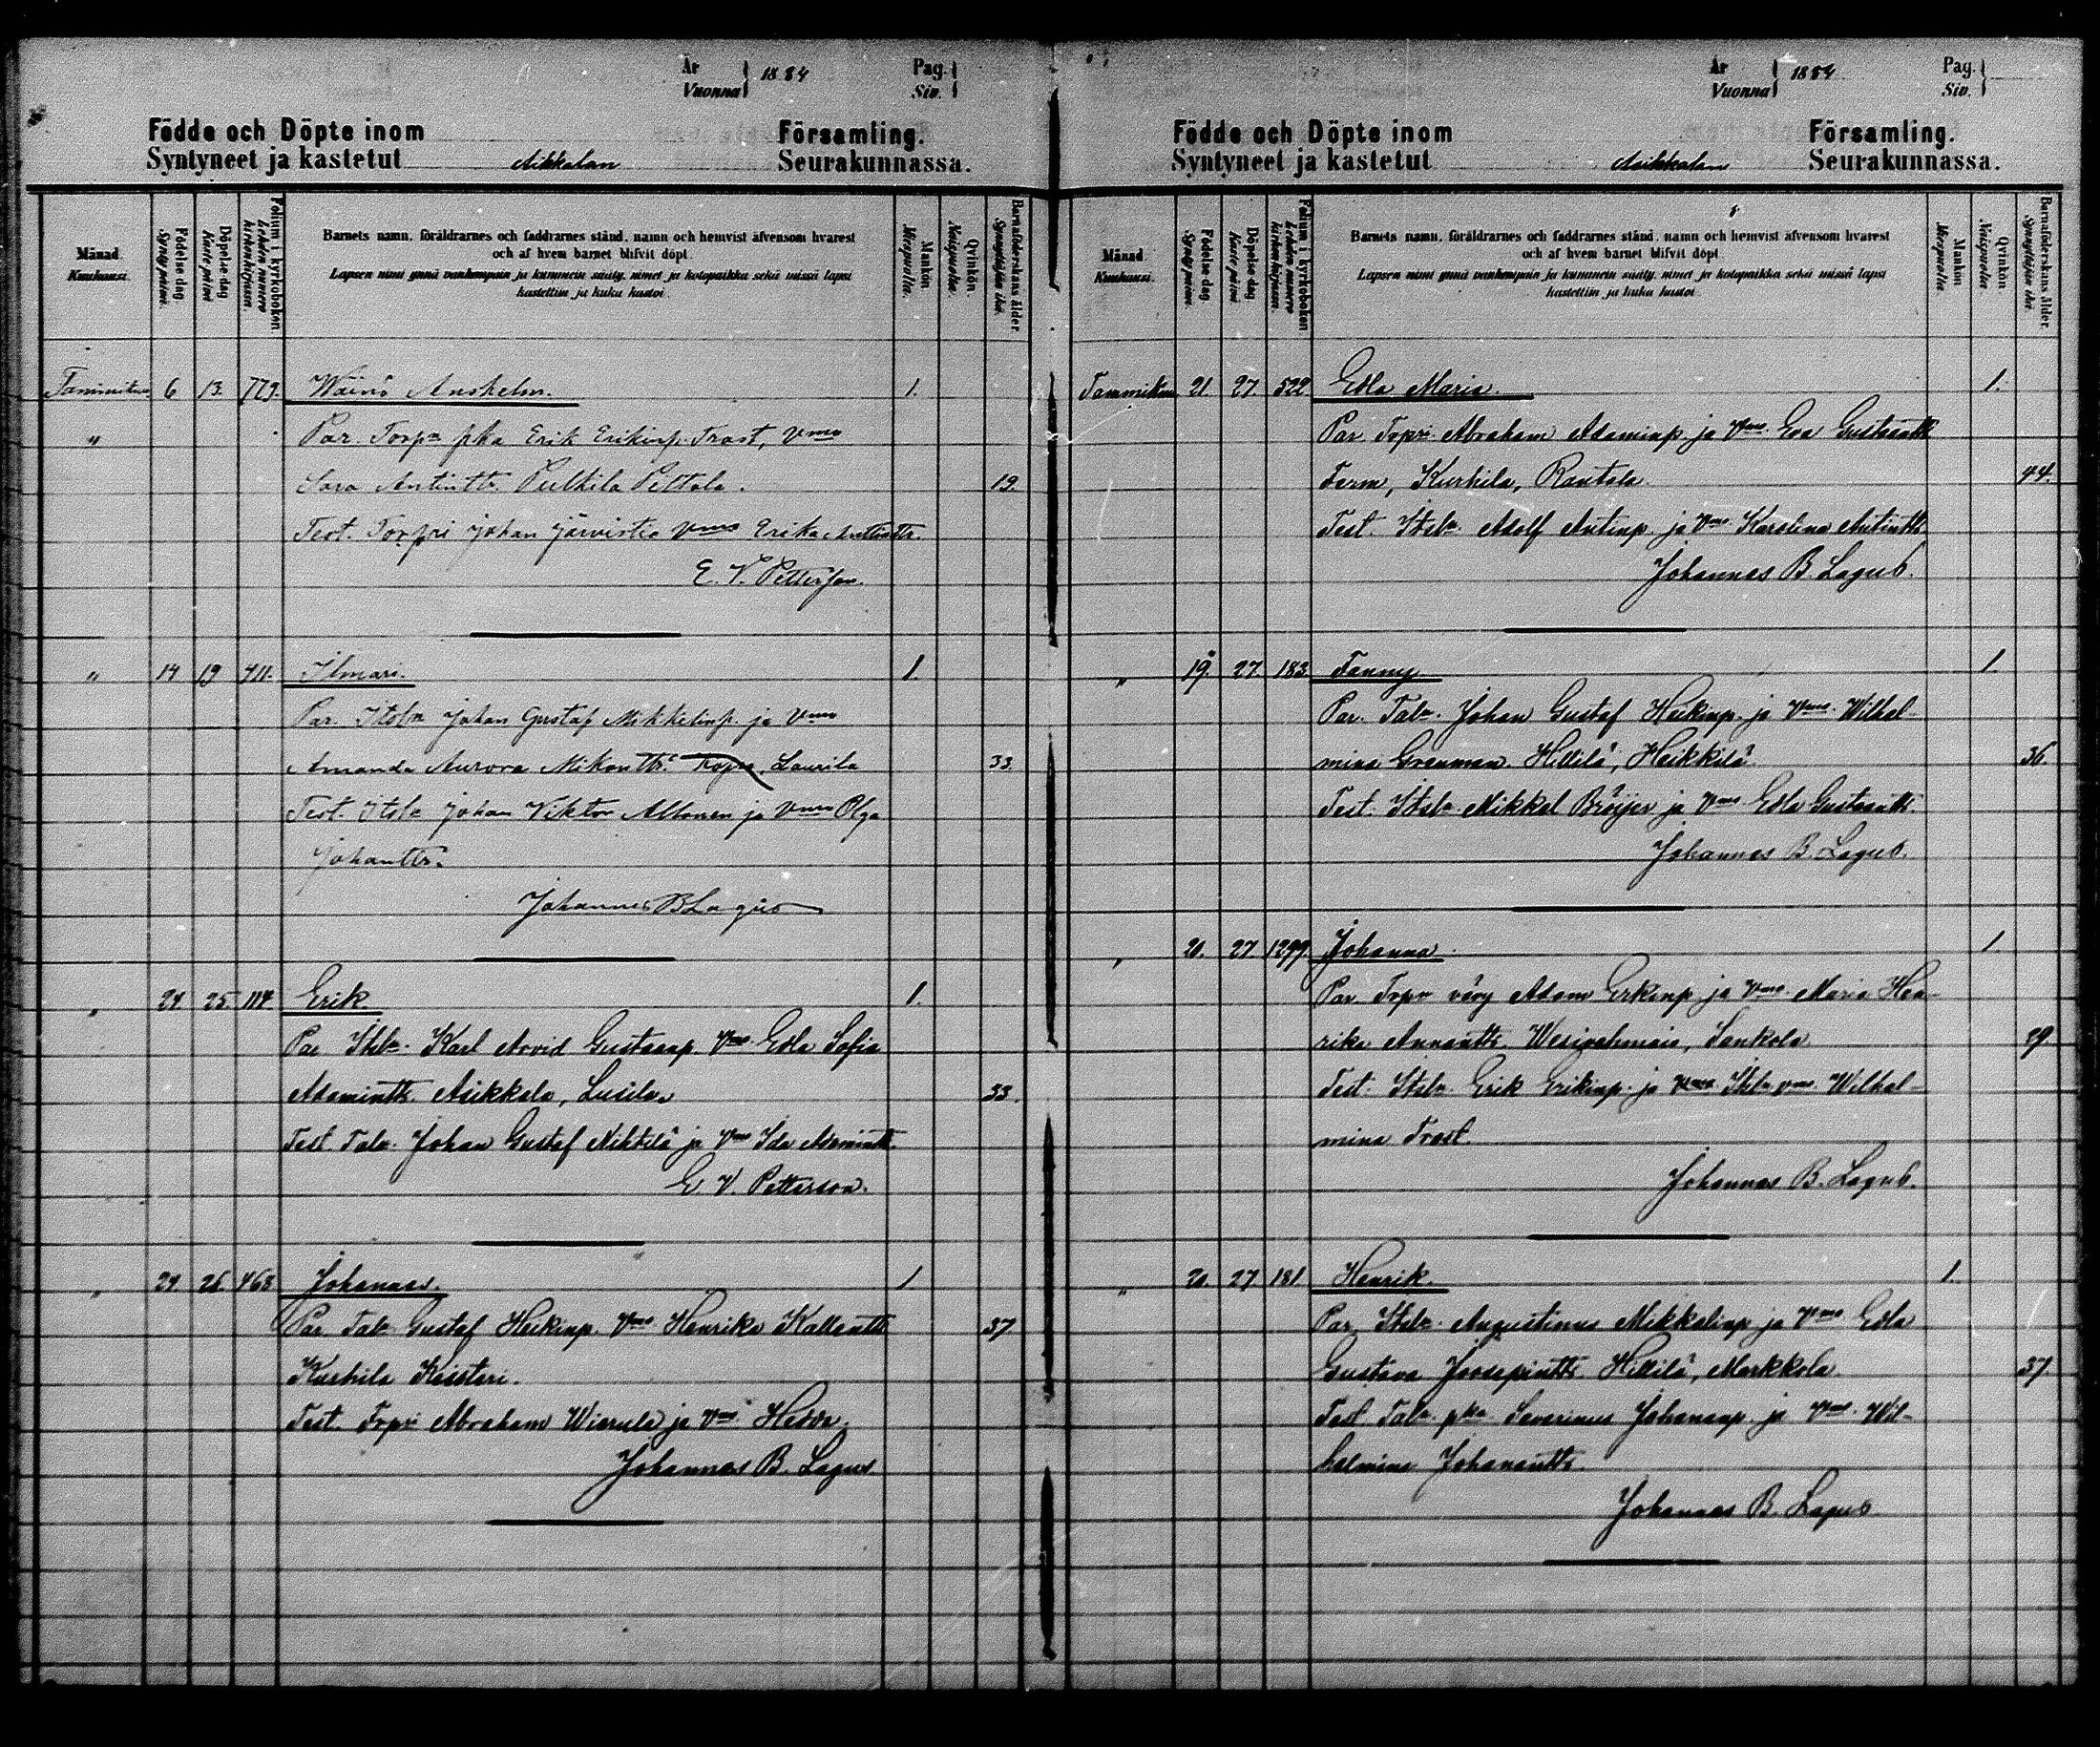 År
Vuonna
1884
Pag.
Siv.
Födde och Döpte inom Församling.
Syntyneet ja kastetut Aikkalan Seurakunnassa.
Månad.
Kuukausi.
Födelse dag.
Syntymäpäivä.
Döpelse dag
Kaste päivä
Folium i kyrkoboken
Lehden numero kirkonkirjassa.
Barnets namn, föräldrarnes och faddrarnes stånd, namn och hemvist äfvensom hvarest
och af hvem barnet blifvit döpt.
Lapsen nimi ynnä vanhempain ja kummein sääty, nimet ja kotopaikka sekä missä lapsi
kastettiin ja kuka kastoi.
Mankön.
Miespuolta.
Qvinkön.
Naispuolta.
Barnaföderskans ålder.
Synnyttäjän ikä.
Tammikuu 6 13. 779. Wäinö Anshelm. 1.
" Par. Torp. pka Erik Erikinp. Trast, Vmo
Sara Antintr. Pulkila Peltola. 19.
Test. Torpri Johan Järvistia Vmo Erika Anttintr.
E. V. Petterson.
" 14 19 411. Ilmari. 1.
Par. Itsln Johan Gustaf Mikkelinp. ja Vmo
Amanda Aurora Mikontr. Laurila 33.
Test. Itsln Johan Viktor Ahlonen ja Vmo Olga
Johantr.
Johannes B Lagus
" 24 25. 114. Erik. 1.
Par. Itsln. Karl Arvid Gustafp. Vmo Edla Sofia
Adamintr. Asikkala, Lusila. 33.
Test. Taln. Johan Gustaf Nikkilä ja Vmo Ida Adamintr.
E. V. Petterson.
" 24. 26. 468 Johannes. 1.
Par. Taln Gustaf Heikinp. Vmo Henrika Kallentr. 37.
Kurhila Keisteri.
Test. Torpri Abraham Wierula ja Vmo Hedda.
Johannes B. Lagus
År
Vuonna
1884
Pag.
Siv.
Födde och Döpte inom Församling.
Syntyneet ja kastetut Asikkalan Seurakunnassa.
Månad.
Kuukausi.
Födelse dag.
Syntymäpäivä.
Döpelse dag
Kaste päivä
Folium i kyrkoboken
Lehden numero kirkonkirjassa.
Barnets namn, föräldrarnes och faddrarnes stånd, namn och hemvist äfvensom hvarest
och af hvem barnet blifvit döpt.
Lapsen nimi ynnä vanhempain ja kummein sääty, nimet ja kotopaikka sekä missä lapsi
kastettiin ja kuka kastoi.
Mankön
Miespuolta.
Qvinkön
Naispuolta.
Barnaföderskans ålder.
Synnyttäjän ikä.
Tammikuu 21. 27. 522. Edla Maria. 1.
Par Torpri. Abraham Adaminp. ja Vmo. Eva Gustaantr.
Farm, Kurhila, Rautala. 44.
Test. Itsln. Adolf Antinp. ja Vmo Karolina Antintr.
Johannes B. Lagus.
" 19. 27. 183. Fanny. 1.
Par. Taln. Johan Gustaf Heikinp. ja Vmo. Wilhel-
mina Grenman. Hillilä, Heikkilä. 36.
Test. Itsln. Mikkel Bröijer ja Vmo Edla Gustaantr.
Johannes B. Lagus.
" 20. 27. 1299. Johanna. 1.
Par. Torpn vävy Adam Erkinp. ja Vmo. Maria Hen-
rika Annantr. Wesivehmaia, Sankola. 29.
Test. Itsln. Erik Erikinp. ja Itsln. vmo. Wilhel-
mina Trast.
Johannes B. Lagus.
" 20. 27 181 Henrik. 1.
Par. Itsln. Augustinus Mikkelinp ja Vmo Edla
Gustava Joosepintr. Hillilä, Markkola. 37.
Test. Taln. pka Severinus Johananp. ja Vmo. Wil-
helmina Johanantr.
Johannes B. Lagus